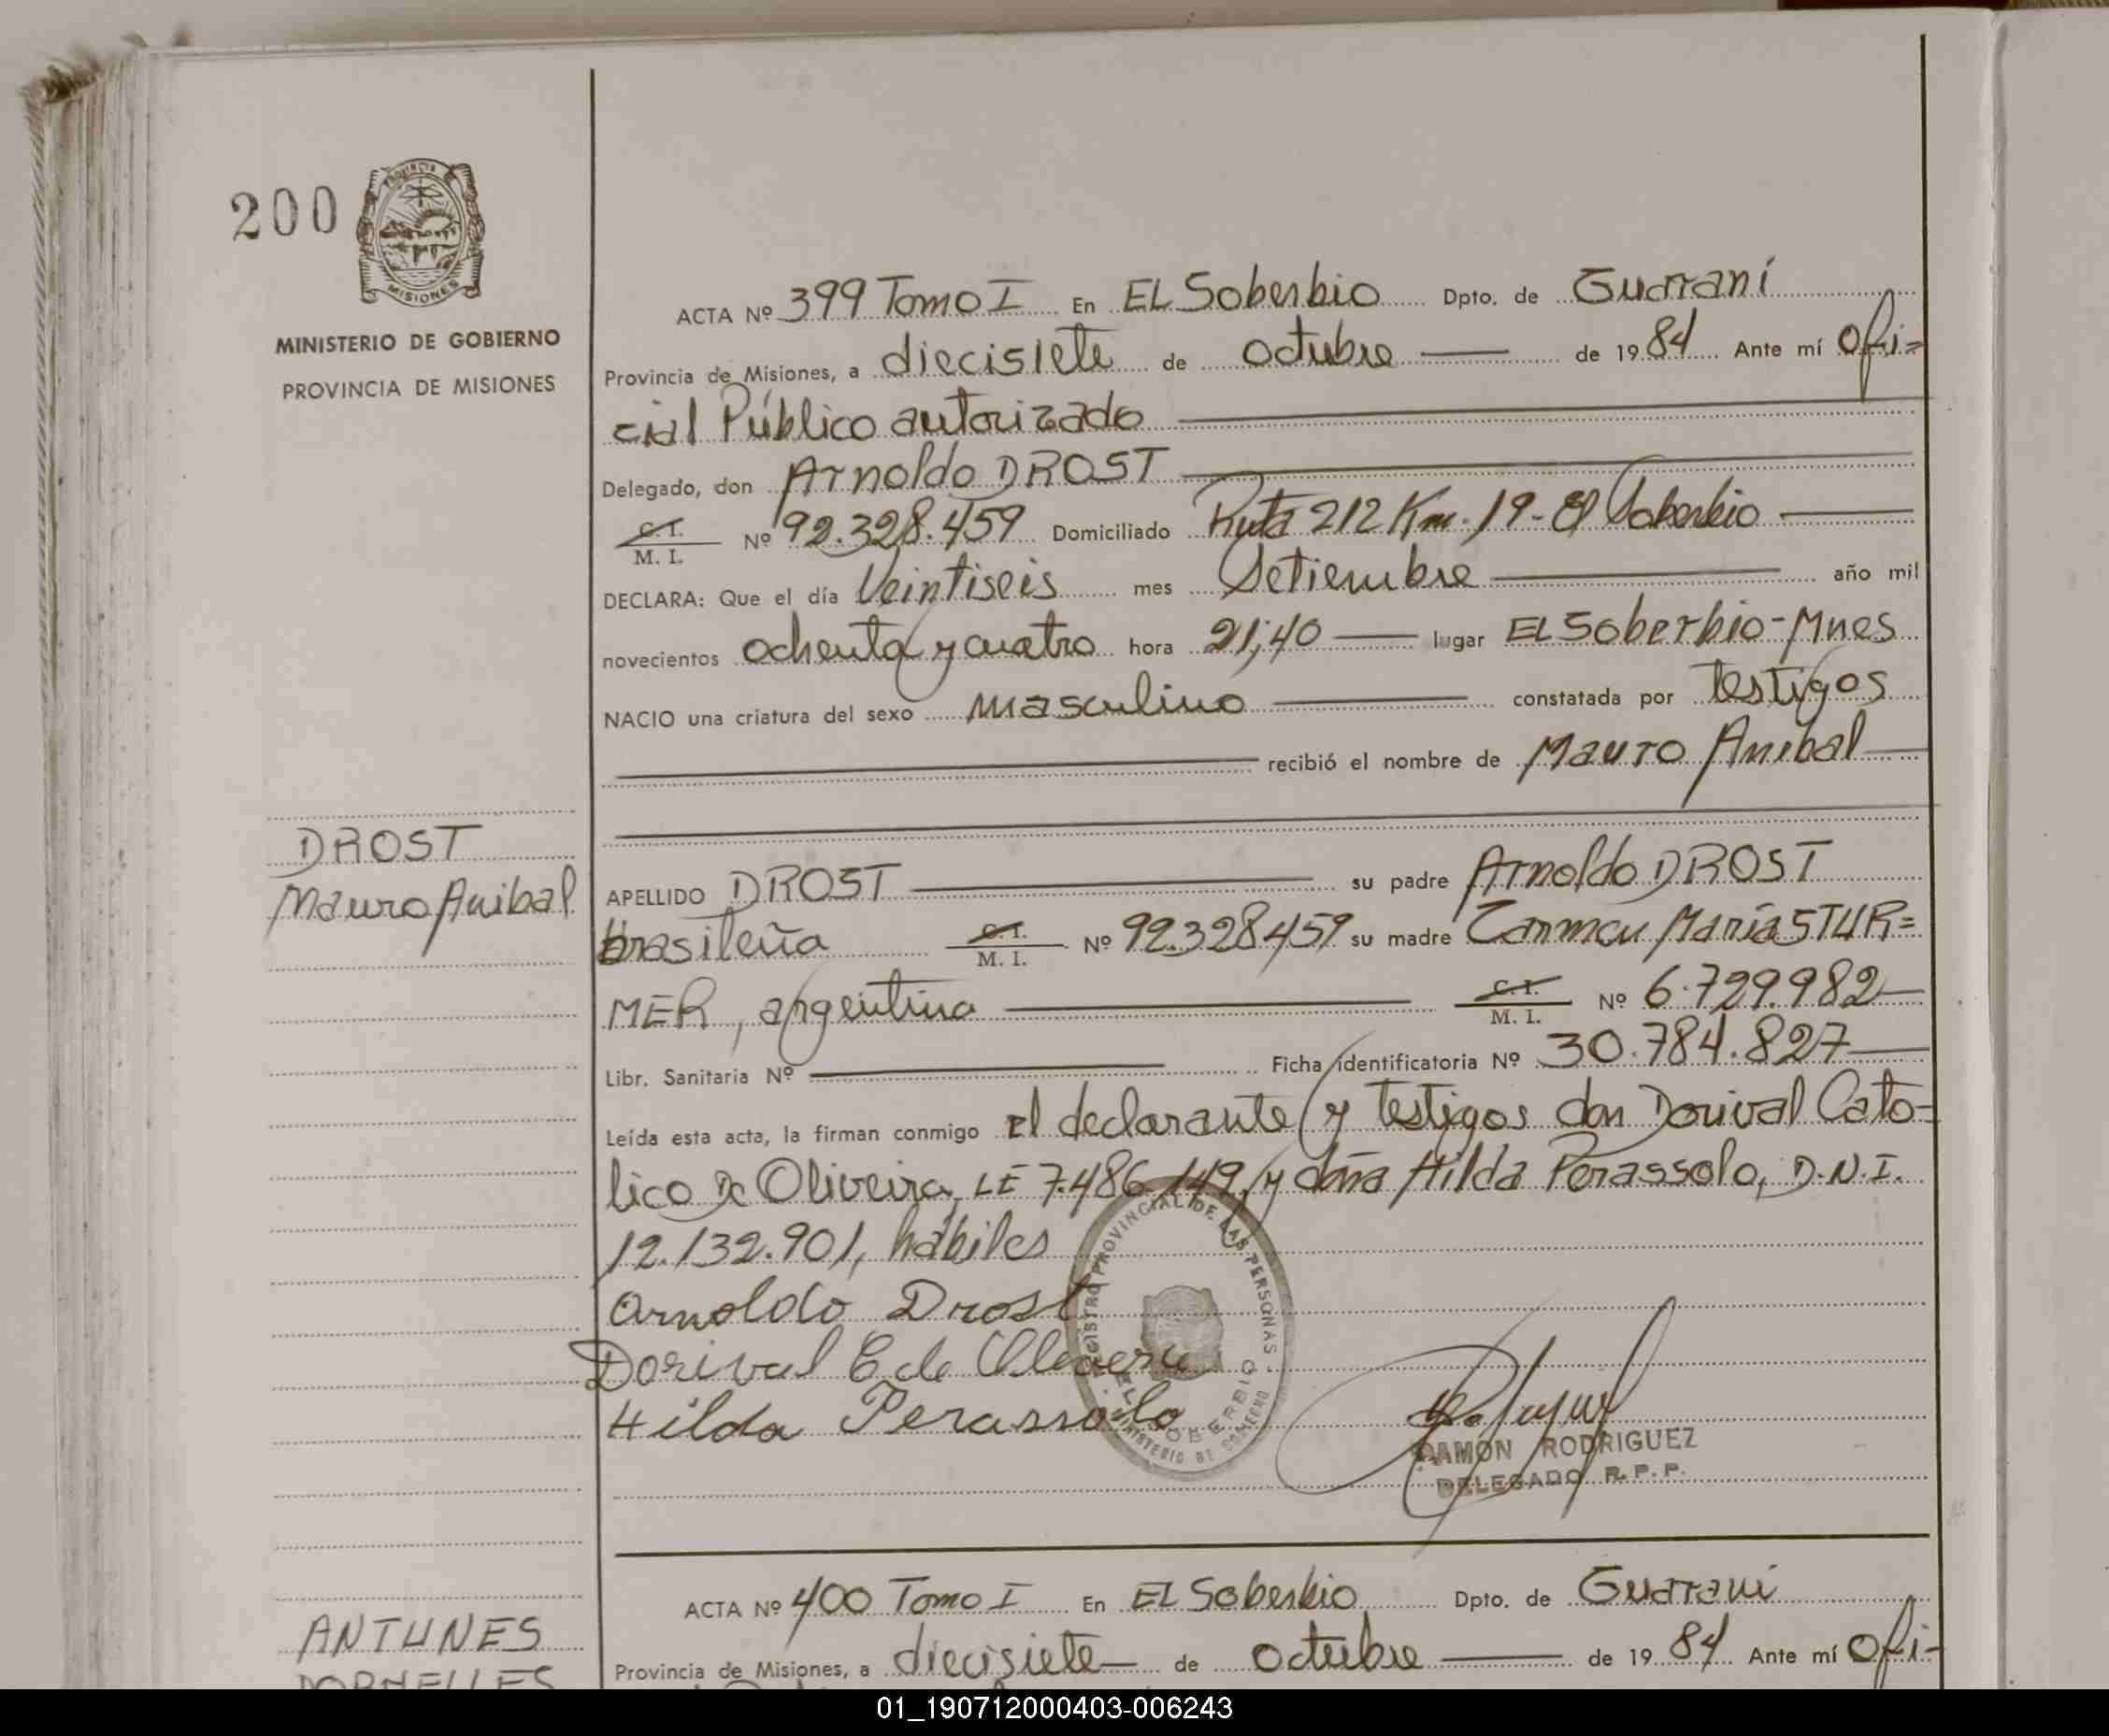 200
PROVINCIA
MISIONES
MINISTERIO DE GOBIERNO
PROVINCIA DE MISIONES
ACTA Nº 399 Tomo I En EL Soberbio Dpto. de Guaraní
Provincia de Misiones, a diecisiete de octubre de 1984 Ante mí Ofi=
cial Público autorizado
Delegado, don Arnoldo DROST
C.I.
M. I. Nº 92.328.459 Domiciliado Ruta 212 Km. 19 - El Soberbio
DECLARA: Que el día Veintiseis mes Setiembre año mil
novecientos ochenta y cuatro hora 21;40 lugar EL Soberbio - Mnes
NACIO una criatura del sexo masculino constatada por testigos
recibió el nombre de Mauro Anibal
DROST
Mauro Anibal
APELLIDO DROST su padre Arnoldo DROST
brasileña C.I. M. I. Nº 92.328.459 su madre Carmen María STUR=
MER, argentina C.I. M. I. Nº 6.729.982
Libr. Sanitaria Nº Ficha identificatoria Nº 30.784.827
Leída esta acta, la firman conmigo el declarante y testigos don Dorival Cato=
lico De Oliveira, LE 7.486.149, y doña Hilda Perassolo, D.N.I.
12.132.901, hábiles
Arnoldo Drost
Dorival C de Oliveira
Hilda Perassolo
REGISTRO PROVINCIAL DE LAS PERSONAS
EL SOBERBIO
MINISTERIO DE GOBIERNO
RAMÓN RODRIGUEZ
DELEGADO R.P.P.
ACTA Nº 400 Tomo I En EL Soberbio Dpto. de Guaraní
ANTUNES
DORNELLES
Provincia de Misiones, a diecisiete de octubre de 1984 Ante mí Ofi-
01_190712000403-006243